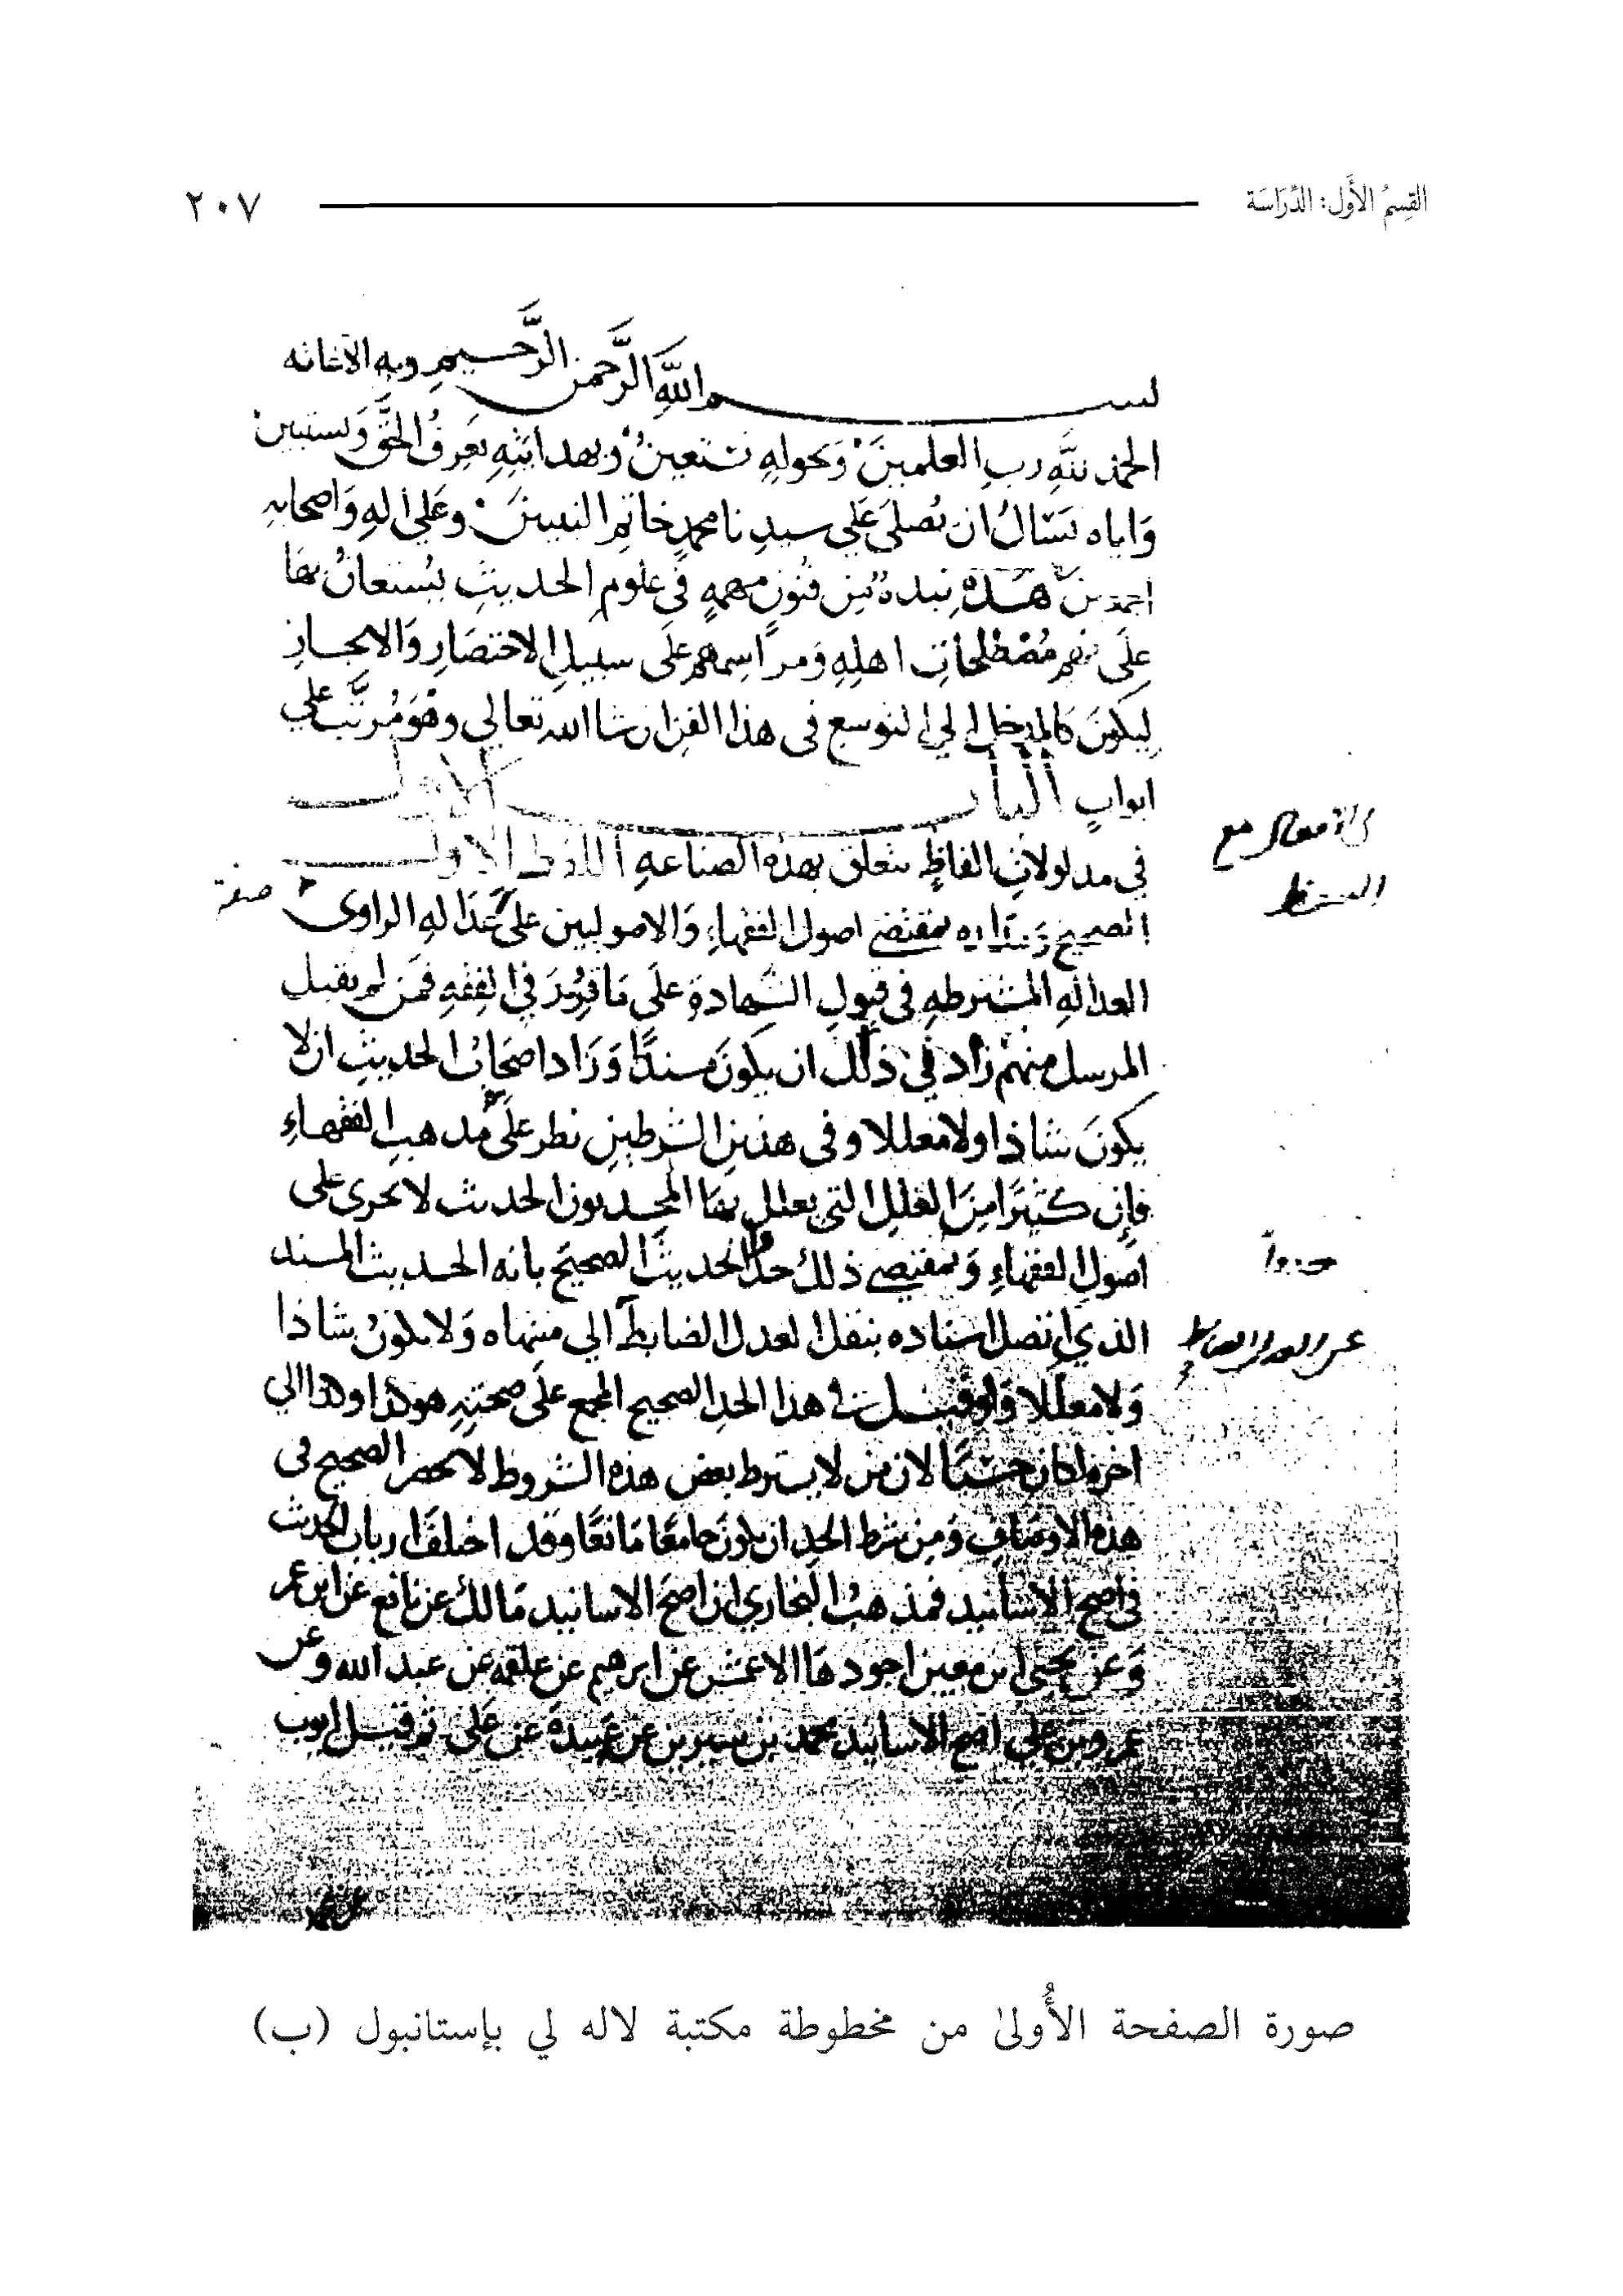 القِسمُ الأَوَّل: الدِّرَاسَة ٢٠٧
بســـم الله الرَّحمن الرَّحيم وبه الاعانه
الحمد لله رب العلمين وبحوله نستعين وبهدايته يعرف الحق ويستبين
واياه نسال ان يصلي على سيدنا محمد خاتم النبيين وعلى اله واصحابه
اجمعين هذه نبذة من فنون مهمه في علوم الحديث يستعان بها
على فهم مصطلحات اهله ومراسمهم على سبيل الاختصار والايجاز
ليكون كالمدخل الى التوسع في هذا الفن ان شا الله تعالى وهو مرتب على
ابواب الباب الاول
في مدلولات الفاظ تتعلق بهذه الصناعه اللفظ الاول
الصحيح ومداره بمقتضى اصول الفقهاء والاصوليين على عداله الراوي
صفة
العداله المشترطه في قبول الشهادة على ما قرر في الفقه فمن لم يقبل
المرسل منهم زاد في ذلك ان يكون مسندا وزاد اصحاب الحديث ان لا
يكون شاذا ولا معللا وفي هذين الشرطين نظر على مذهب الفقهاء
فان كثيرا من العلل التي يعلل بها المحدثون الحديث لا تجرى على
اصول الفقهاء وبمقتضى ذلك حد الحديث الصحيح بانه الحديث المسند
الذي اتصل اسناده بنقل العدل الضابط الي منتهاه ولا يكون شاذا
عن العدل الضابط
ولا معللا ولو قيل في هذا الحد الصحيح المجمع على صحته هو كذا وكذا الي
اخره لكان حسنا لان من لا يشترط بعض هذه الشروط لا يحصر الصحيح في
هذه الاوصاف ومن شرط الحد ان يكون جامعا مانعا وقد اختلف ارباب الحديث
في اصح الاسانيد فمذهب البخاري ان اصح الاسانيد مالك عن نافع عن ابن عمر
وعن يحيى ابن معين اجودها الاعمش عن ابرهيم عن علقمه عن عبد الله وعن
عمرو بن علي اصح الاسانيد محمد بن سيرين عن عبيدة عن على ثم قيل ايوب
صورة الصفحة الأُولىٰ من مخطوطة مكتبة لاله لي بإستانبول (ب)